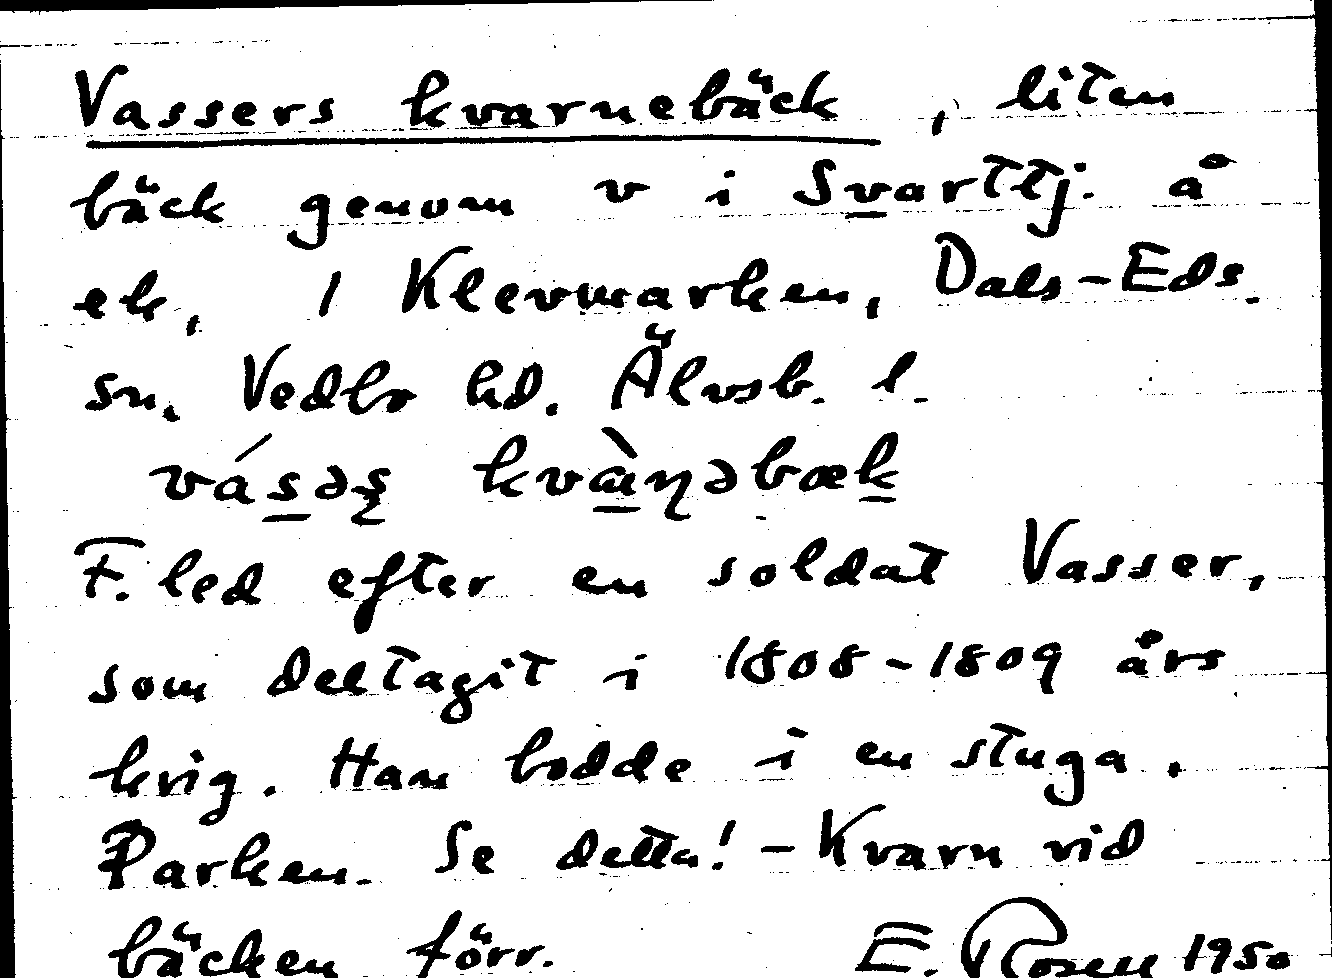 Vassers kvarnebäck, liten
bäck genom v i Svarttj. å
ek, i Klevmarken, Dals-Eds
sn. Vedbo hd. Älvsb. l.
vásəʂ kvàɳəbæk
F. led efter en soldat Vasser,
som deltagit i 1808-1809 års
krig. Han bodde i en stuga,
Parken. Se detta! - Kvarn vid
bäcken förr. E. Rosell 1950